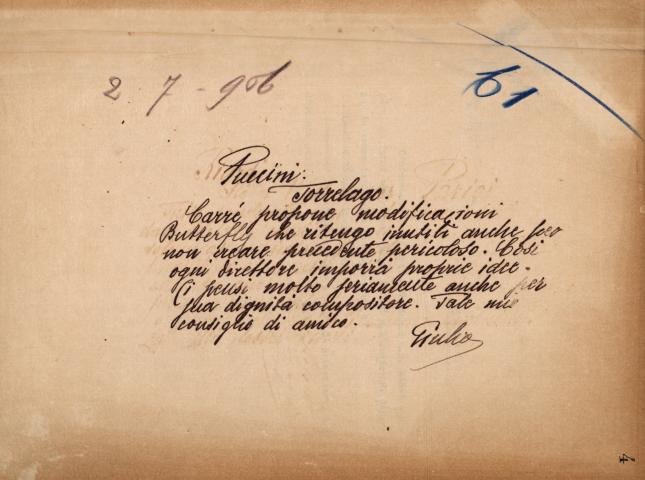 2 7 - 906
61
Puccini.
Torrelago.
Carré propone modificazioni
Butterfly che ritengo inutili anche per
non creare precedente pericoloso. Così
ogni direttore imporrà proprie idee.
Ci pensi molto seriamente anche per
sua dignità compositore. Tale mio
consiglio di amico.
Giulio
4